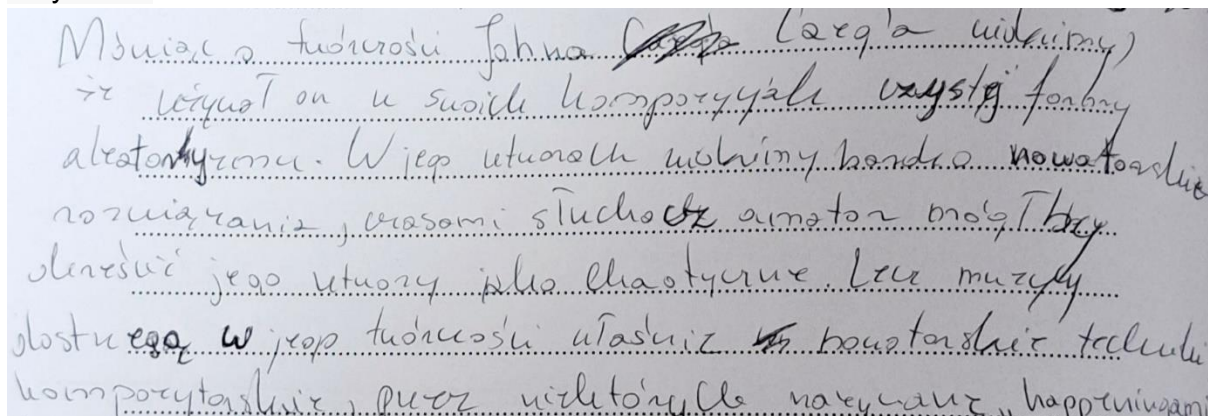 Mówiąc o twórczości Johna Cage'a widzimy,
iż używał on w swoich kompozycjach czystej formy
aleatoryzmu. W jego utworach widzimy bardzo nowatorskie
rozwiązania, czasami słuchacz amator mógłby
określić jego utwory jako chaotyczne. Lecz muzycy
dostrzegą w jego twórczości właśnie nowatorskie techniki
kompozytorskie, przez niektórych nazywane happeningami